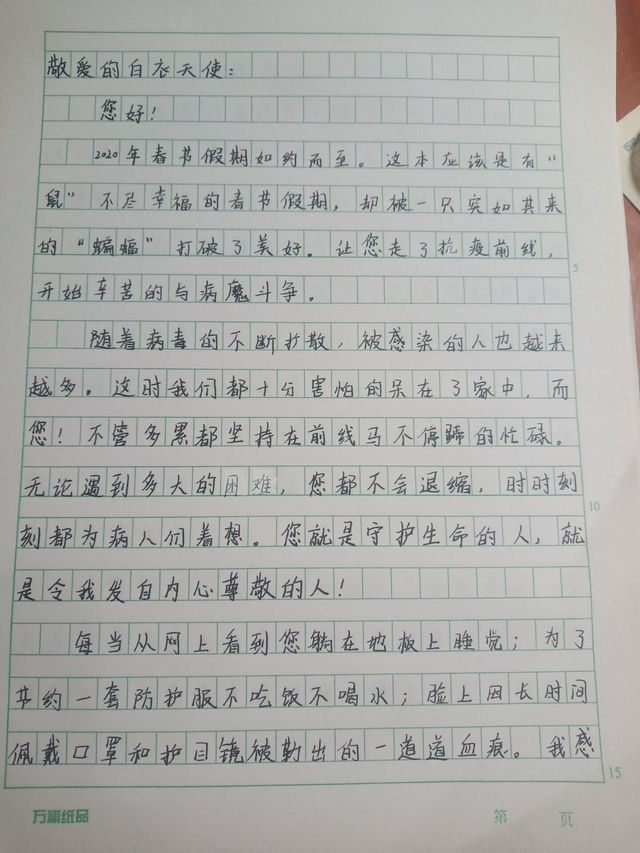 敬爱的白衣天使：
您好！
2020年春节假期如约而至。这本应该是有“
鼠”不尽幸福的春节假期，却被一只突如其来
的“蝙蝠”打破了美好。让您走了抗疫前线，
5
开始辛苦的与病魔斗争。
随着病毒的不断扩散，被感染的人也越来
越多。这时我们都十分害怕的呆在了家中，而
您！不管多累都坚持在前线马不停蹄的忙碌。
无论遇到多大的困难，您都不会退缩，时时刻
10
刻都为病人们着想。您就是守护生命的人，就
是令我发自内心尊敬的人！
每当从网上看到您躺在地板上睡觉；为了
节约一套防护服不吃饭不喝水；脸上因长时间
佩戴口罩和护目镜被勒出的一道道血痕。我感
15
万祺纸品
第 页